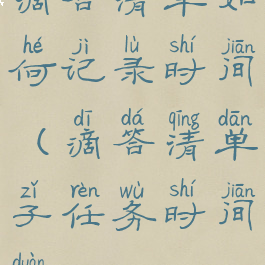 滴答清单如
hé jì lù shí jiān
何记录时间
dī dá qīng dān
(滴答清单
zǐ rèn wù shí jiān
子任务时间
duàn